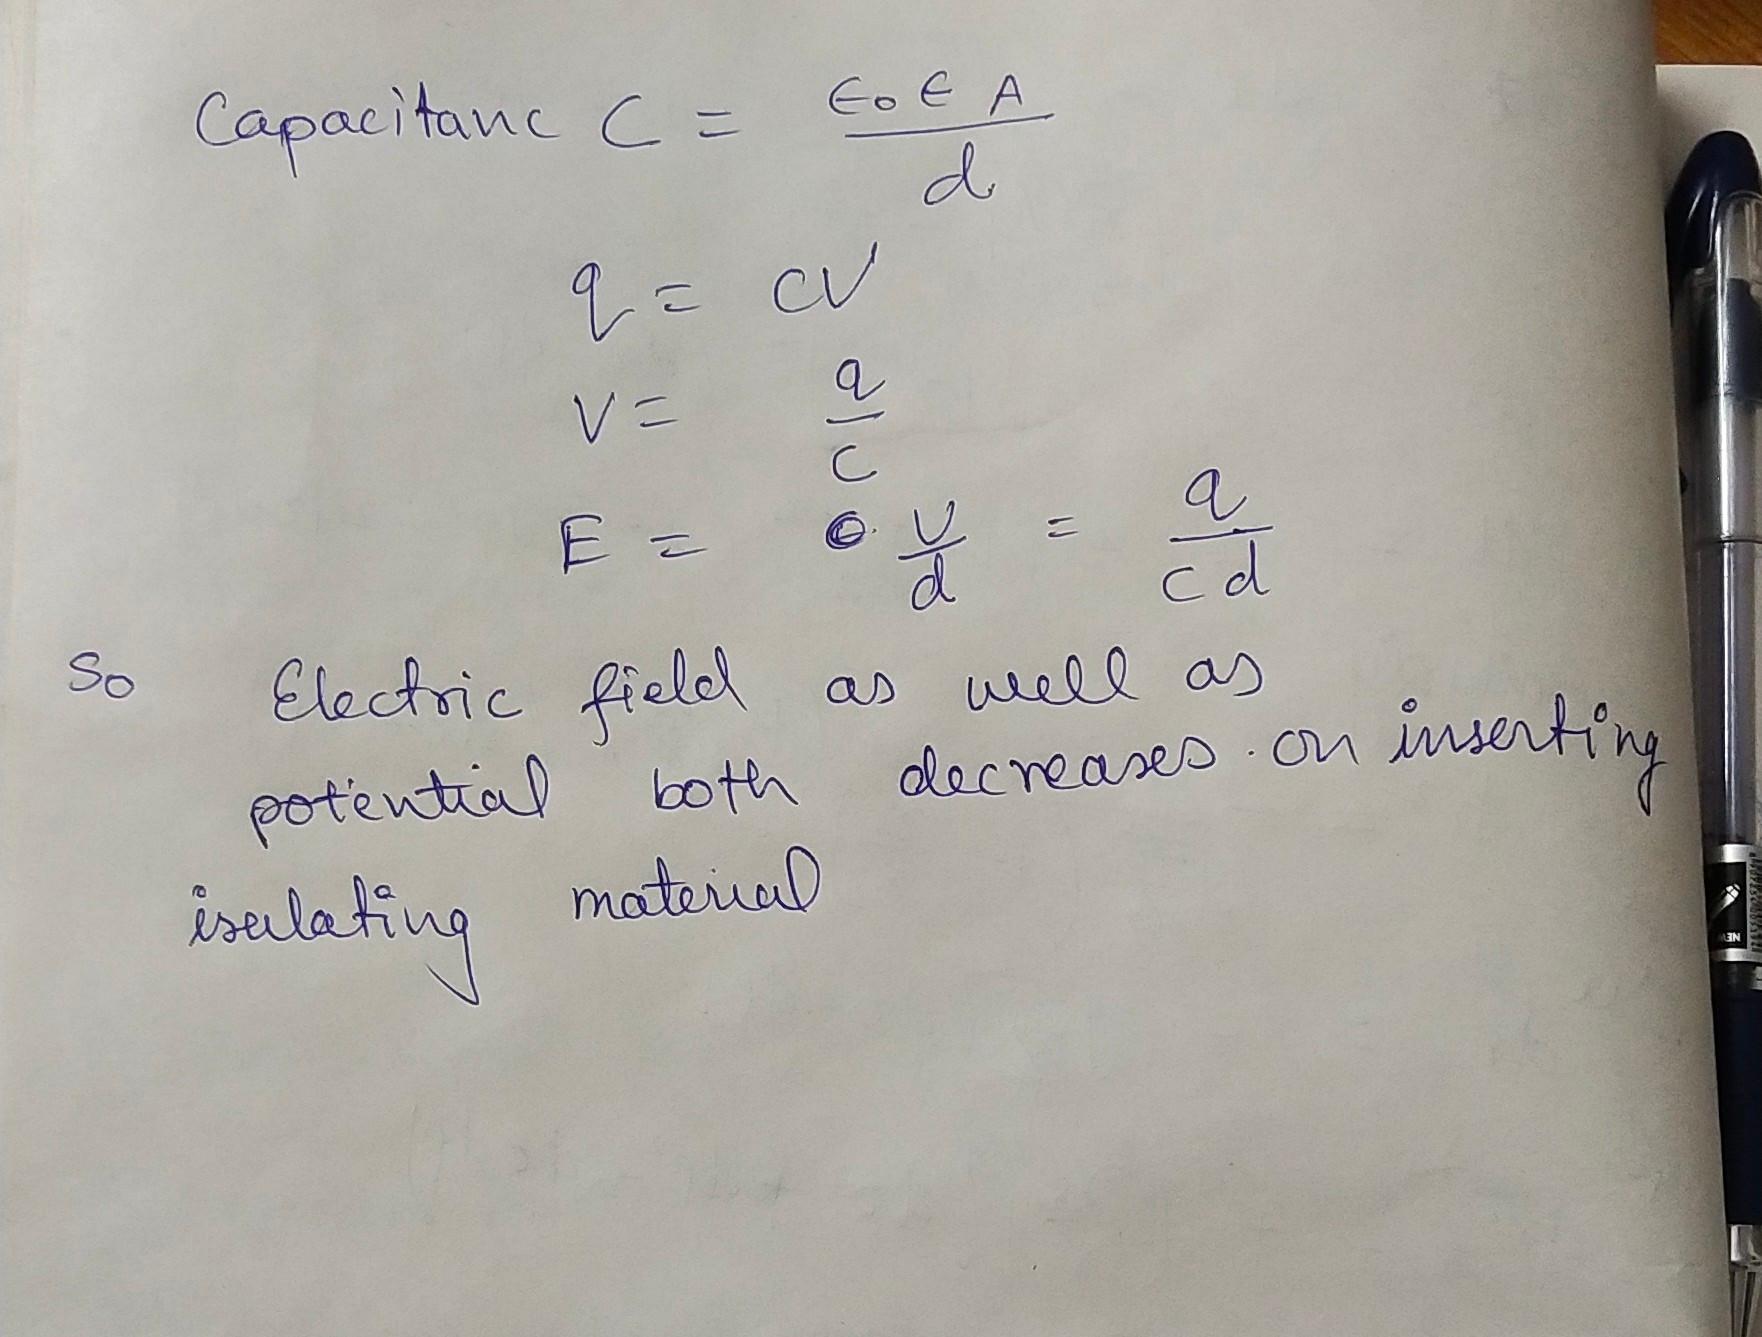 Capacitanc C = ϵ₀ ϵ A / d
q = CV
V = q / C
E = V / d = q / cd
So Electric field as well as
potential both decreases. on inserting
isulating material
NEW